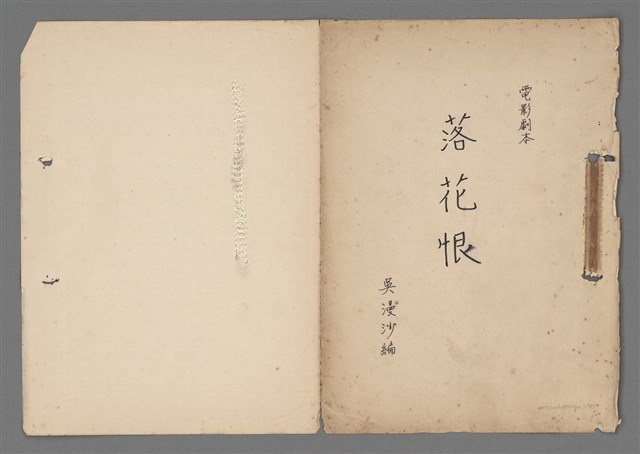 電影劇本
落花恨
吳漫沙編